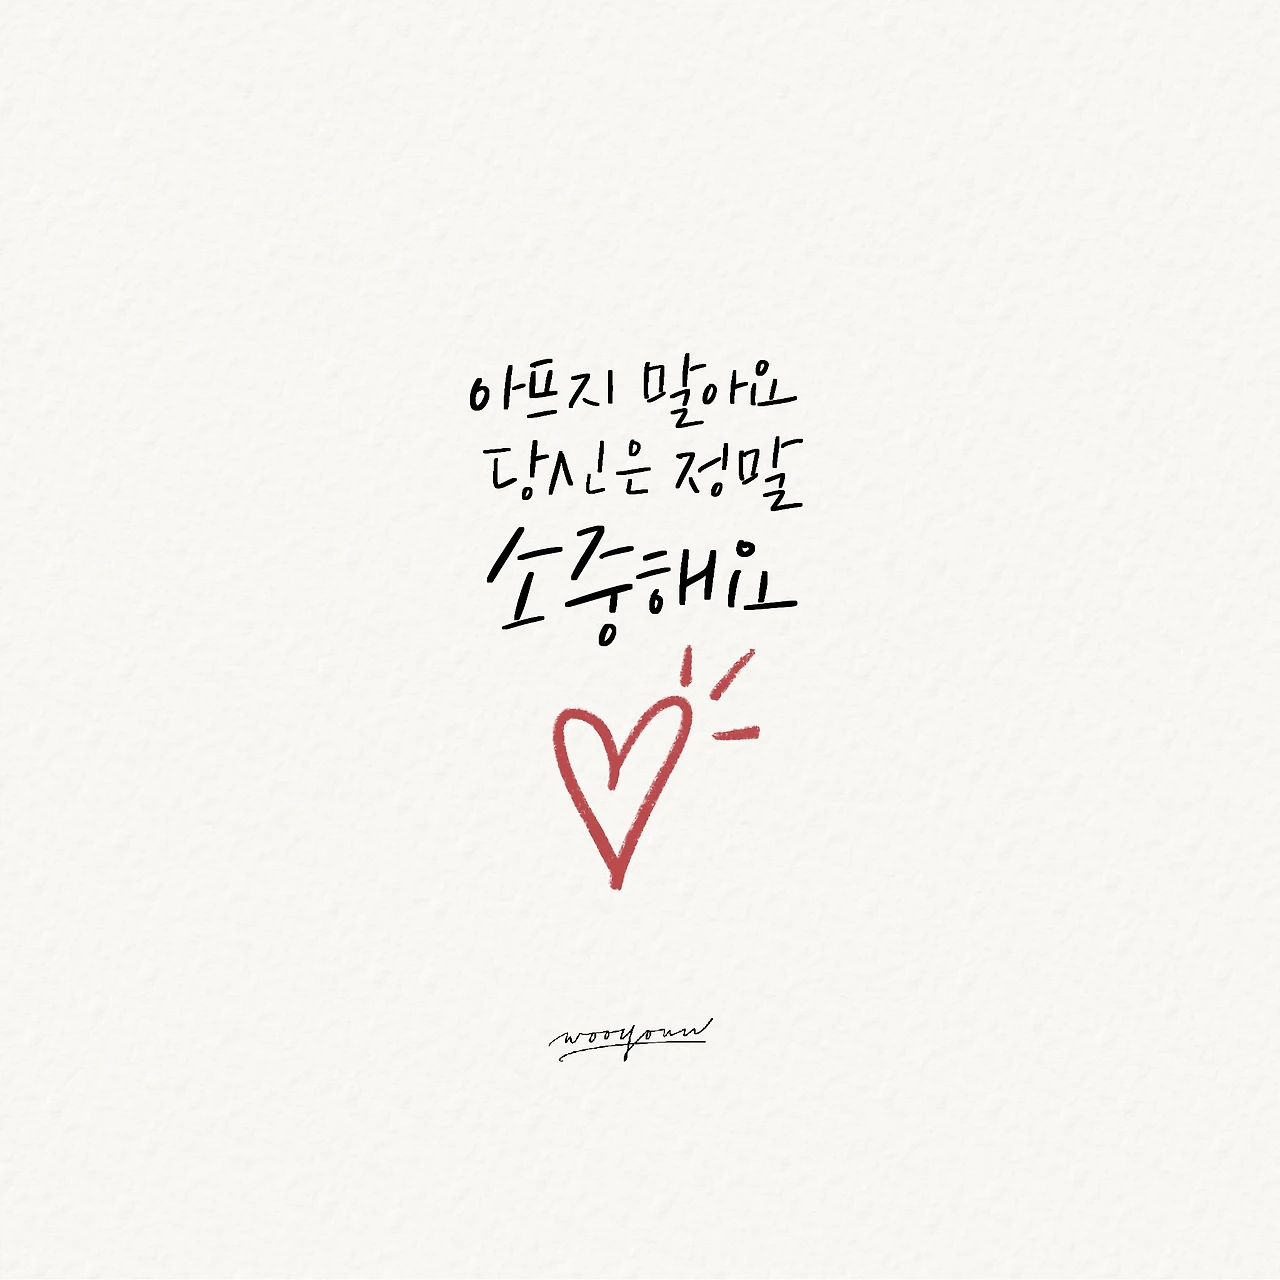 아프지 말아요
당신은 정말
소중해요